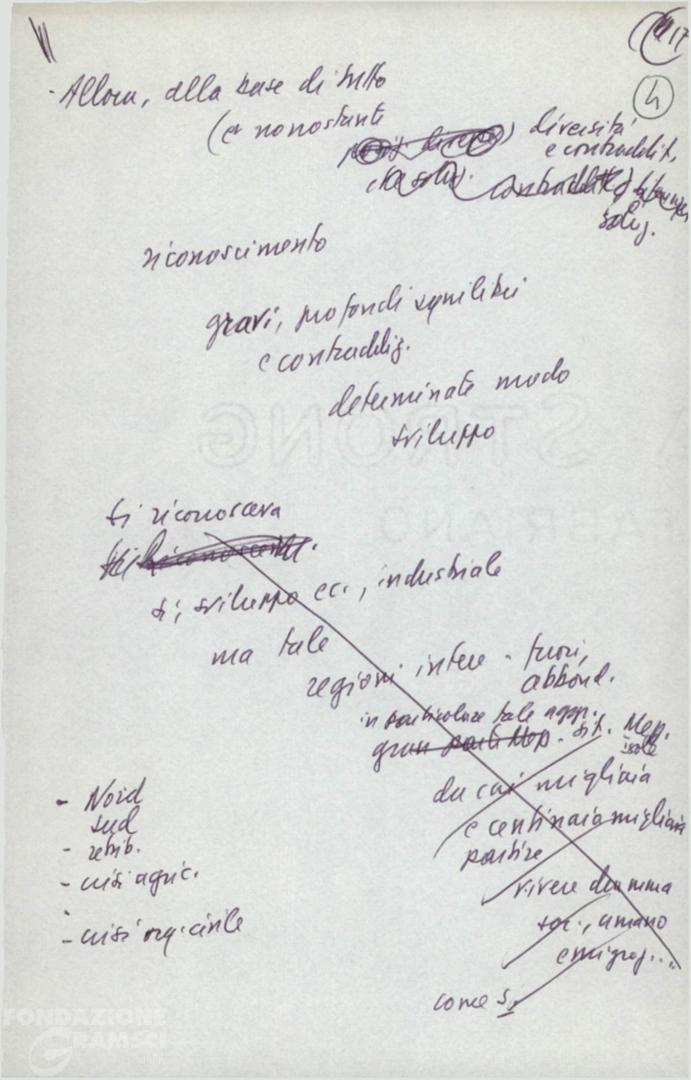 17
4
- Allora, alla base di tutto
(e nonostante
diversità
e contraddiz.
soluz.
riconoscimento
gravi, profondi squilibri
e contraddiz.
determinate modo
sviluppo
Si riconosceva
si, sviluppo ecc., industriale
ma tale
regioni intere - fuori,
abband.
in particolare tale agg.
gran parte Mep. - sit. Mep.
isole
da cui migliaia
e centinaia migliaia
partire
vivere dramma
soc., umano
emigraz...
- Nord
Sud
- retrib.
- crisi agric.
- crisi org. civile
come si
A STRONG
FABRIANO
FONDAZIONE
GRAMSCI